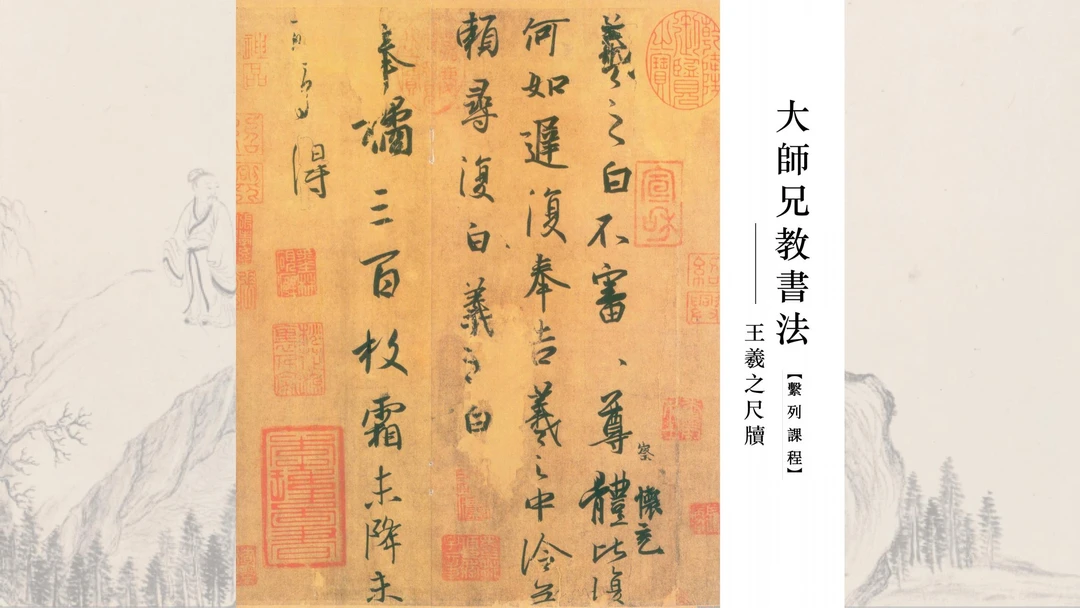 大師兄教書法
——王羲之尺牘
【繫列課程】
羲之白不審、尊體比復
察
懷充
何如遲復奉告羲之中冷無
賴尋復白羲之白
奉橘三百枚霜未降未
得
宣和